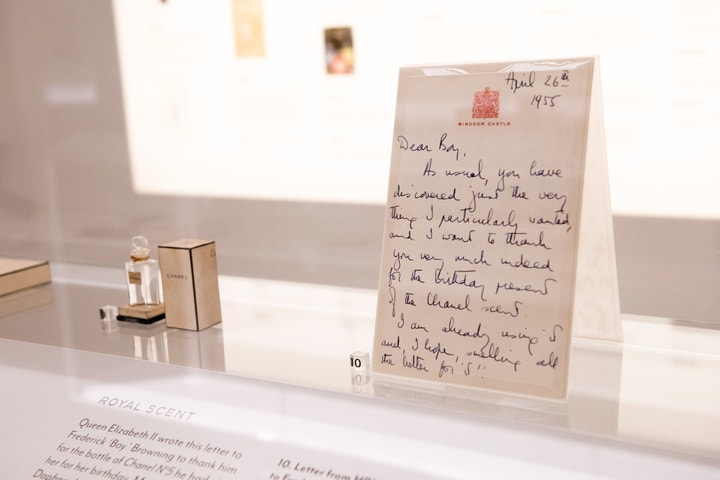 April 26th
1955.
WINDSOR CASTLE
Dear Boy,
As usual, you have
discovered just the very
thing I particularly wanted,
and I want to thank
you very much indeed
for the birthday present
of the Chanel scent.
I am already using it
and I hope, smelling all
the better for it!!
CHANEL
10
ROYAL SCENT
Queen Elizabeth II wrote this letter to
Frederick 'Boy' Browning to thank him
for the bottle of Chanel N°5 he had
her for her birthday.
10. Letter from
to